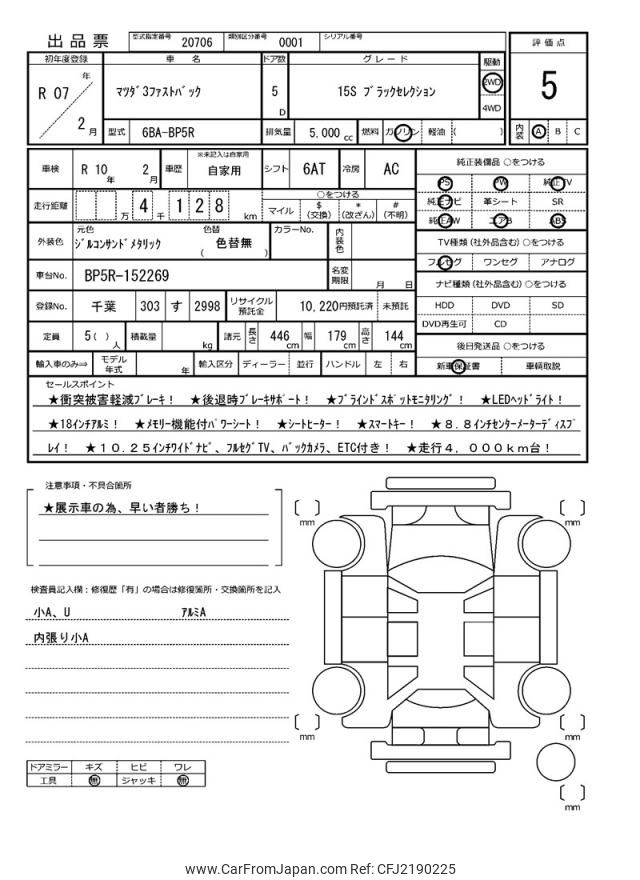 出品票
型式指定番号 20706 類別区分番号 0001 シリアル番号
評価点
5
内装 A B C
初年度登録 車名 ドア数 グレード 駆動
R 07 年 2月
マツダ3ファストバック 5 D 15S ブラックセレクション 2WD
4WD
型式 6BA-BP5R 排気量 5,000 cc 燃料 ガソリン 軽油 ( )
車検 R 10年 2月 車歴 ※未記入は自家用 自家用 シフト 6AT 冷房 AC
走行距離 万 4 千 1 2 8 km
○をつける
マイル $(交換) *(改ざん) #(不明)
外装色 元色 ジルコンサンドメタリック 色替 ( 色替無 ) カラーNo. 内装色
車台No. BP5R-152269 名変期限 月 日
登録No. 千葉 303 す 2998 リサイクル預託金 10,220円預託済 未預託
定員 5( )人 積載量 kg 諸元 長さ 446cm 幅 179cm 高さ 144cm
輸入車のみ⇒ モデル年式 年 輸入区分 ディーラー 並行 ハンドル 左 右
純正装備品 ○をつける
PS PW 純正TV
純正ナビ 革シート SR
純正AW エアB ABS
TV種類 (社外品含む) ○をつける
フルセグ ワンセグ アナログ
ナビ種類 (社外品含む) ○をつける
HDD DVD SD
DVD再生可 CD
後日発送品 ○をつける
新車保証書 車輌取説
セールスポイント
★衝突被害軽減ブレーキ! ★後退時ブレーキサポート! ★ブラインドスポットモニタリング! ★LEDヘッドライト!
★18インチアルミ! ★メモリー機能付パワーシート! ★シートヒーター! ★スマートキー! ★8.8インチセンターメーターディスプ
レイ! ★10.25インチワイドナビ、フルセグTV、バックカメラ、ETC付き! ★走行4,000km台!
注意事項・不具合箇所
★展示車の為、早い者勝ち!
検査員記入欄:修復歴「有」の場合は修復箇所・交換箇所を記入
小A、U アルミA
内張り小A
ドアミラー キズ ヒビ ワレ
工具 無 ジャッキ 無
[ ] mm
[ ] mm
[ ] mm
[ ] mm
[ ] mm
www.CarFromJapan.com Ref: CFJ2190225